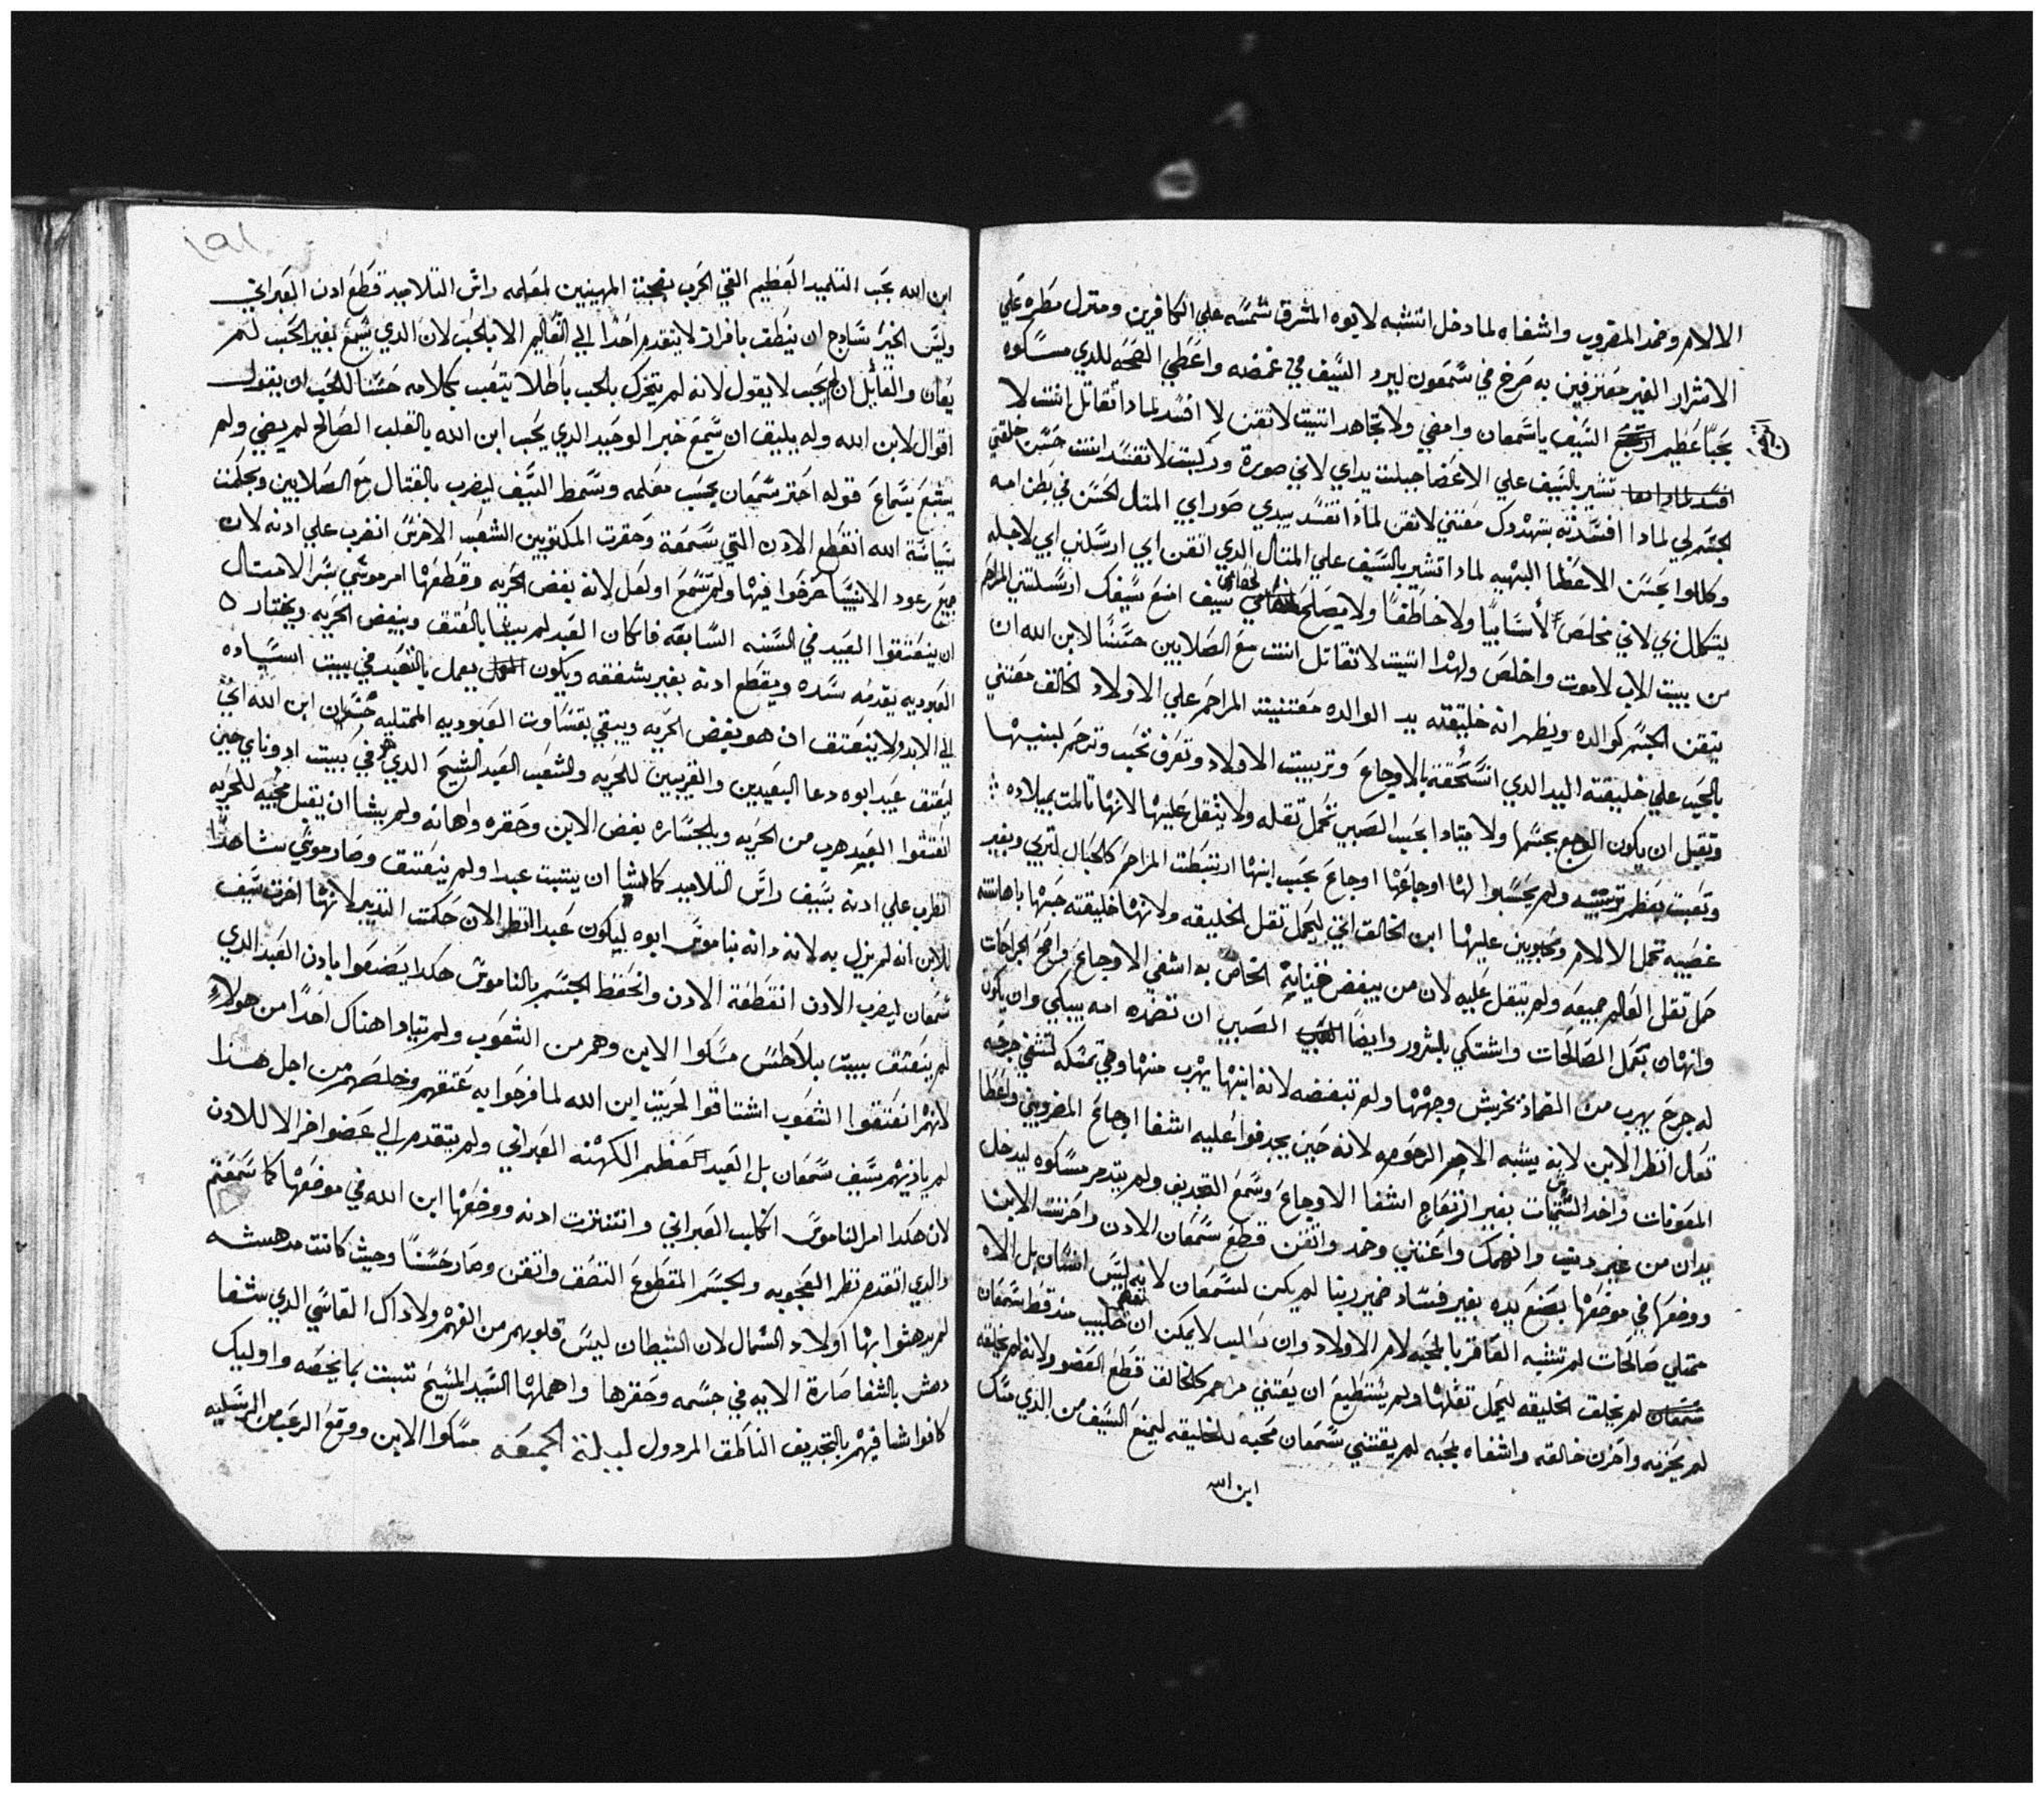 الالام وضمد المضروب واشفاه لما دخل اتشبه لابوه المشرق شمسه علي الكافرين ومنزل مطره علي
الاشرار الغير معترفين به صرخ في سمعون ليرد السيف في غمضه واعطي الصحه للدي مسكوه
بحبًا عظيم ارجع السيف ياسمعان وامضي ولا تجاهد اتيت لاتقن لا افسد لمادا تقاتل انتت لا
تشير بالسيف علي الاعضا جبلت يداي لاني صورة وركبت لا تفسد انتت حسن خلقتي
الجسم لي لمادا افسدته بتهدوك مقتني لاتقن لمادا تفسد بيدي صور ابي المتال الحسن في بطن امه
وكللوا بحسن الاعضا البهيه لمادا تشير بالسيف علي المتال الدي اتقن ابي ارسلني ابي لاجله
يتكمل زي لاني مخلص لا سابيًا ولا خاطفًا ولا يصلح سيف امنع سيفك ارسلتني المراحم
من بيت الاب لاموت واخلص ولهدا اتيت لا تقاتل انتت مع الصلابين حسنًا لابن الله ان
يتقن الجسم كوالده ويظهر انه خليقته بيد الوالده مقتنيت المراحم علي الاولاد الخالق مقتني
بالحب علي خليقته اليد الدي استحقة بالاوجاع وتربيت الاولاد وتعرف تحب وترحم لبنيها
وتقبل ان يكون الوجع بجسمها ولا يتادا بحب الصبي تحمل تقله ولا يتقل عليها لانها تالمت بميلاده
وتعبت بعظم تربيته ولم يحسبوا لها اوجاعها اوجاع بحب ابنها ارتبطت المراحم كالحبال لتربي وبغير
غصيبه تحمل الالام ومحبوبين عليها ابن الخالق اتي ليحمل تقل الخليقه ولانها خليقته حبها باهانته
حمل تقل العالم جميعه ولم يتقل عليه لان من يبغض الخاص به اشفي الاوجاع واضح الجراحات
وانهان بعمل الصالحات واشتكي بالشرور وايضًا الصبي ان تضمده امه يبكي وان يكون
له جرح يهرب من الضماد بخربش وجهها ولم تبغضه لانه ابنها يهرب منها وهي تمسكه لتشفي جرحه
تعال انظر الابن لانه يشبه الام الرحومه لانه حين يجدفوا عليه اشفا اوجاع المضروبين واعطا
المعونات واخد الشتمات بغير انزعاج اشفا الاوجاع وسمع التجديف ولم يتدمر مسكوه ليدخل
يدان من غير دنب وانهمك واغتني وضمد واتقن قطع سمعان الادن واحزنت الابن
ووضعها في موضعها بصنع يده بغير فساد ضمير ربنا لم يكن لسمعان لانه ليس انسان بل الاه
ممتلي صالحات لم تتشبه العاقر بالمحبه لام الاولاد وان تعظم لا يمكن ان
لم يخلق الخليقه ليحمل تقلها ولم يستطيع ان يقتني مراحم كالخالق قطع العضو ولانه لم يخلقه
لم يحزنه واحزن خالقه واشفاه بمحبه لم يقتني سمعان محبه للخليقه ليمنع السيف من الدي مسك
ابن الله
١٩١
ابن الله بحب التلميد العظيم القي الحرب المهينين لمعلمه راس التلاميد قطع ادن العبراني
وليس الخير ساديج ان ينطق بافراز لا يتقدم احدًا الي التعاليم الا بالحب لان الدي يسمع بغير الحب لم
يعان والقايل ان لم يحب لا يقول لانه لم يتحرك بالحب باطلا يتعب بكلامه حسنا للحب ان يقول
اقوال لابن الله وله يليق ان سمع خبر الوحيد الدي يحب ابن الله بالقلب الصالح لم يضي ولم
يشبع بسماع قوله احتر سمعان بحب معلمه وسمط السيف ليضرب بالقتال مع الصلابين وبحكمت
سياسة الله انقطع الادن التي سمعة وحقرت المكتوبين الشعب الاخرش انضرب علي ادنه لان
جميع رعود الانبيا صرخوا فيها ولم تسمع اولعل لانه بغض الحريه وقطعها امر موسي سر الامتال
ان ينعتقوا العبيد في السنه السابعه فان كان العبد لم يشا بالعتق ويبغض الحريه ويختار
العبوديه يقدمه سيده ويقطع ادنه بغير شفقه ويكون يعمل بالتعبد في بيت اسياده
الي الابد ولا ينعتق ان هو بغض الحريه ويبقي بقساوت العبوديه الممتليه ابن الله اتي
ليعتق عبيد ابوه دعا البعيدين والقريبين للحريه والشعب العبد الشيخ الدي هو في بيت ادوناي حين
انعتقوا العبيد هرب من الحريه وبالجساره بغض الابن وحقره واهانه ولم يشا ان يقبل محبيه للحريه
انضرب علي ادنه بسيف راس التلاميد كانشا ان يتبت عبدا ولم ينعتق وصار موسي شاهدًا
للابن انه لم يزل به لانه دانه بناموس ابوه ليكون عبد انظر الان حكمت التدبير لانها اخرت سيف
سمعان ليضرب الادن انقطعة الادن وانحفظ الجسم بالناموس هكدا يضعوا بادن العبد الدي
لم ينعتق ببيت بيلاطس مسكوا الابن وهم من الشعوب ولم يتادا هناك احدًا من هولاء
لانهم انعتقوا الشعوب اشتاقوا لحريت ابن الله لما فرحوا به عتقهم وخلصهم من اجل هدا
لم يادنهم سيف سمعان بل العبد لعظيم الكهنه العبراني ولم يتقدم الي عضو اخر الا للادن
لان هكدا امر الناموس الكلب العبراني وانتترت ادنه ووضعها ابن الله في موضعها كما سمعتم
والدي اتقدم نظر العجوبه والجسم المقطوع التصق واتقن وصار حسنًا وحيث كانت مدهسه
لم يدهشوا بها اولاد الشمال لان الشيطان ليس قلوبهم من الفهم ولا داك القاسي الدي شفا
دهش بالشفا صارة الايه في جسمه وحقرها واهملها السيد المسيح تتبت بما يخصه واوليك
كانوا شافيهم بالتجديف الناطق المردول ليلة الجمعه مسكوا الابن ووقع الرعب من الرسليه